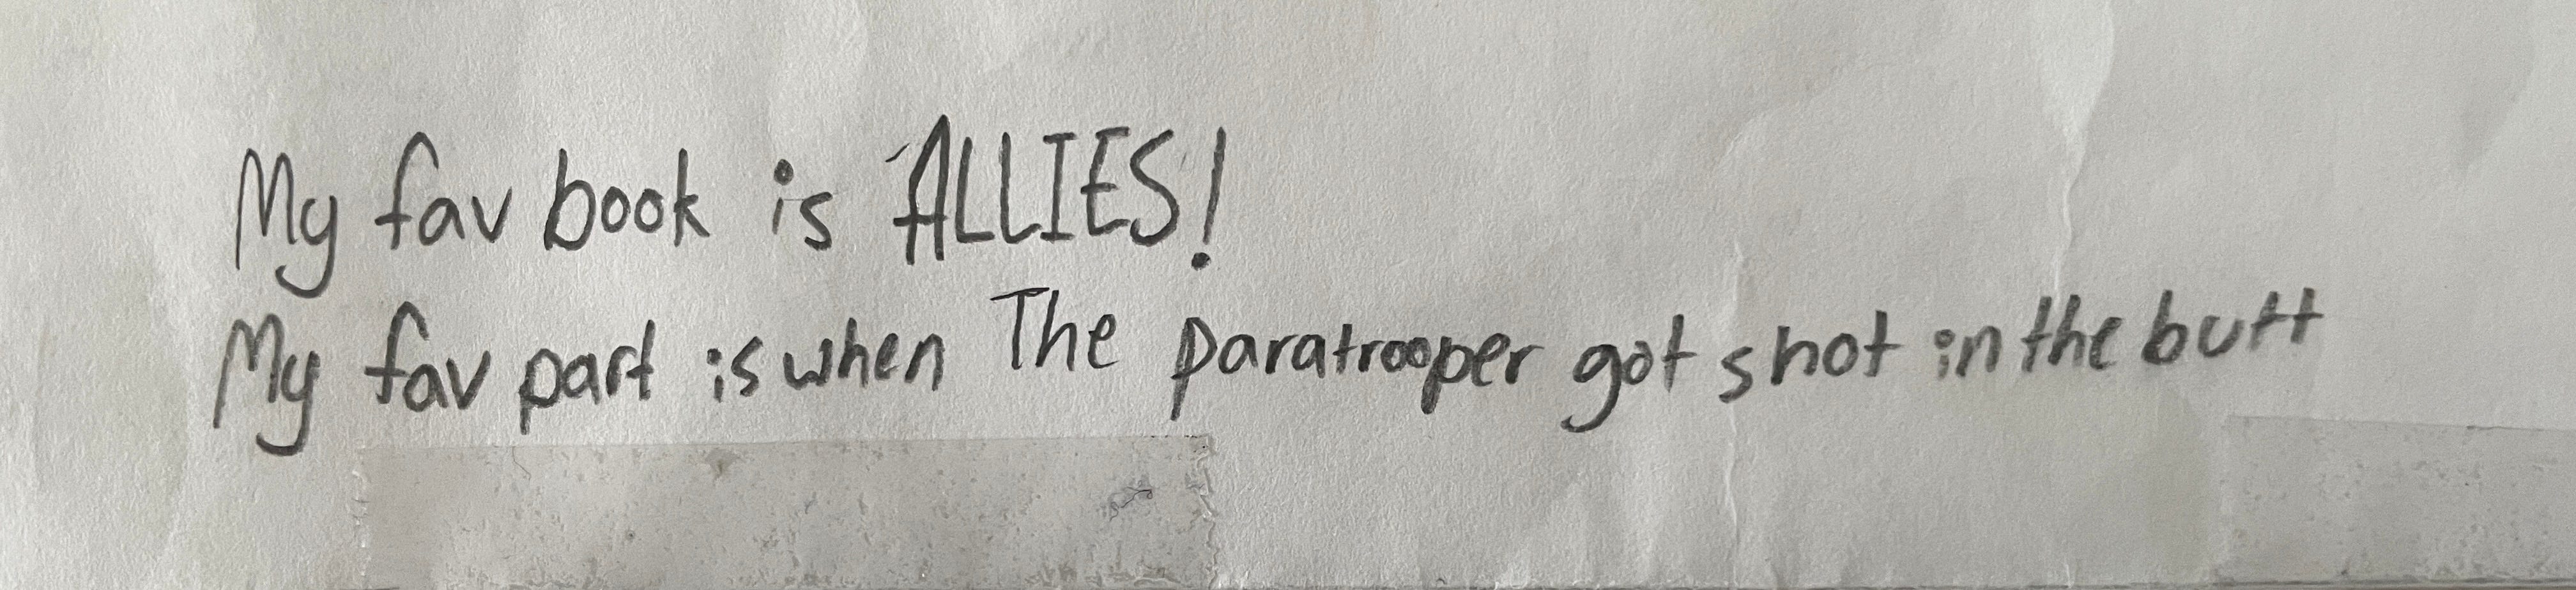 My fav book is ALLIES!
My fav part is when The paratrooper got shot in the butt